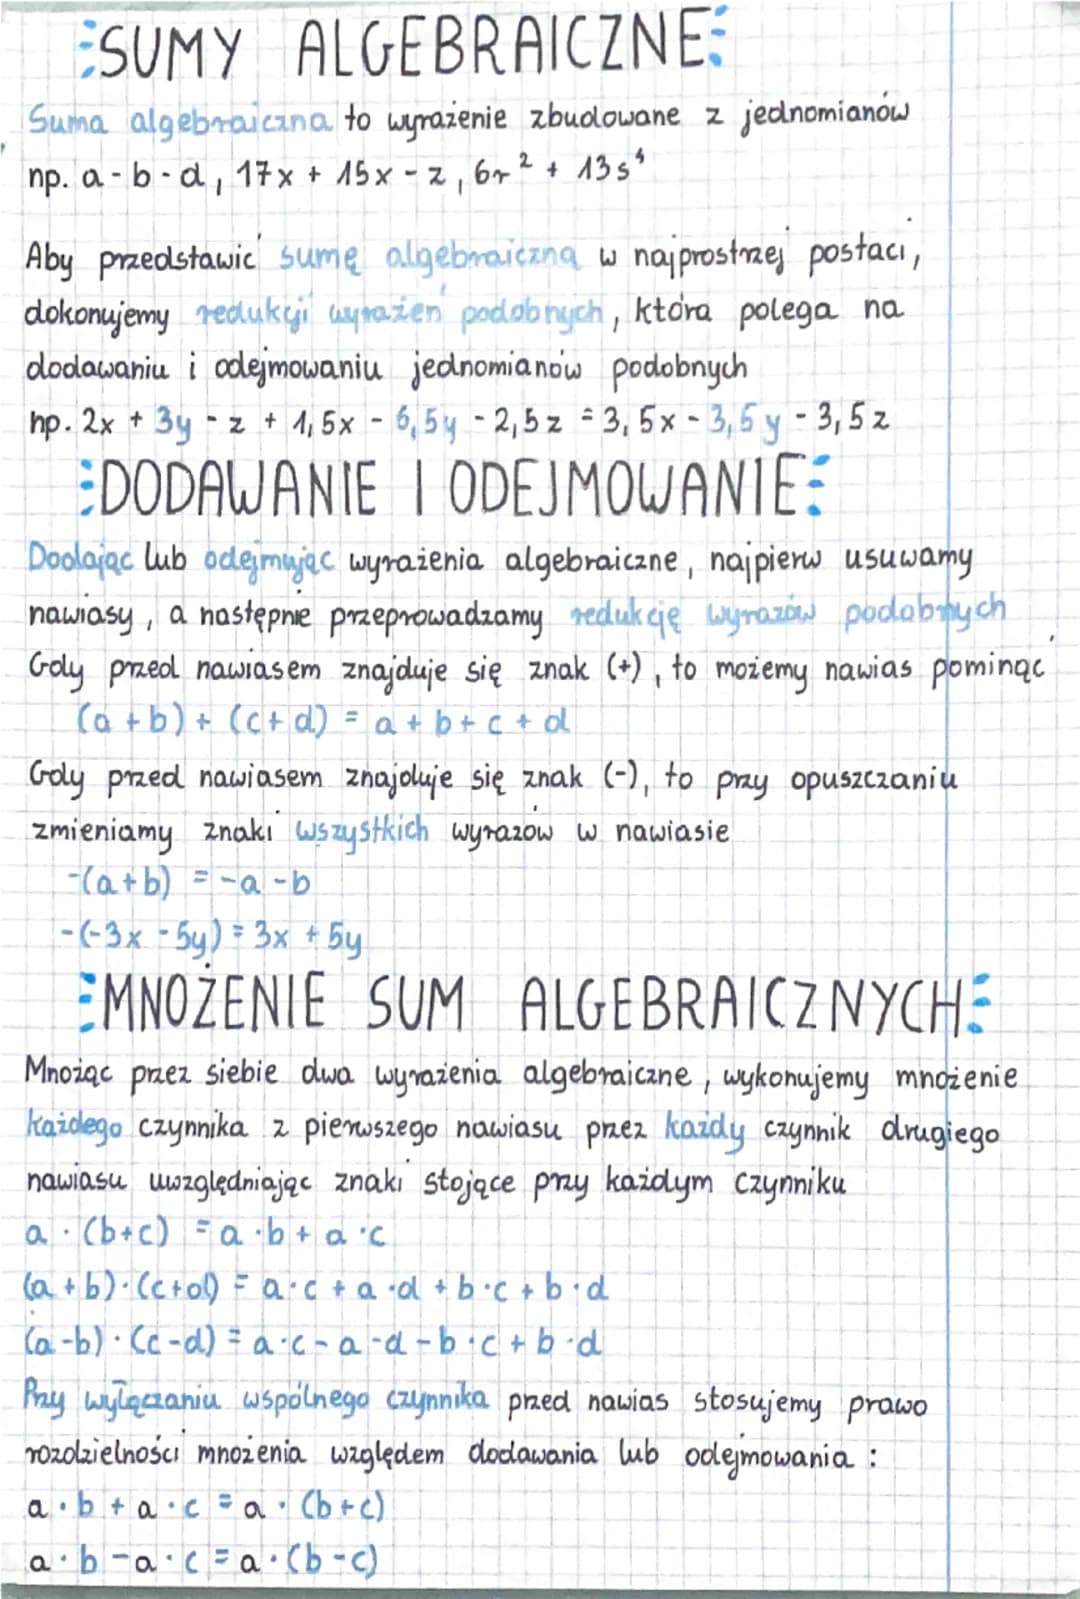 SUMY ALGEBRAICZNE
Suma algebraiczna to wyrażenie zbudowane z jednomianów
np. a - b - d, 17x + 15x - z, 6r² + 13s⁴
Aby przedstawić sumę algebraiczną w najprostrzej postaci,
dokonujemy redukcji wyrażeń podobnych, która polega na
dodawaniu i odejmowaniu jednomianów podobnych
np. 2x + 3y - z + 1,5x - 6,5y - 2,5z = 3,5x - 3,5y - 3,5z
DODAWANIE I ODEJMOWANIE
Dodając lub odejmując wyrażenia algebraiczne, najpierw usuwamy
nawiasy, a następnie przeprowadzamy redukcję wyrazów podobnych
Gdy przed nawiasem znajduje się znak (+), to możemy nawias pominąć
(a + b) + (c + d) = a + b + c + d
Gdy przed nawiasem znajduje się znak (-), to przy opuszczaniu
zmieniamy znaki wszystkich wyrazów w nawiasie
-(a+b) = -a - b
-(-3x - 5y) = 3x + 5y
MNOŻENIE SUM ALGEBRAICZNYCH
Mnożąc przez siebie dwa wyrażenia algebraiczne, wykonujemy mnożenie
każdego czynnika z pierwszego nawiasu przez każdy czynnik drugiego
nawiasu uwzględniając znaki stojące przy każdym czynniku
a · (b+c) = a · b + a · c
(a + b) · (c+d) = a · c + a · d + b · c + b · d
(a - b) · (c - d) = a · c - a - d - b · c + b · d
Przy wyłączaniu wspólnego czynnika przed nawias stosujemy prawo
rozdzielności mnożenia względem dodawania lub odejmowania :
a · b + a · c = a · (b + c)
a · b - a · c = a · (b - c)